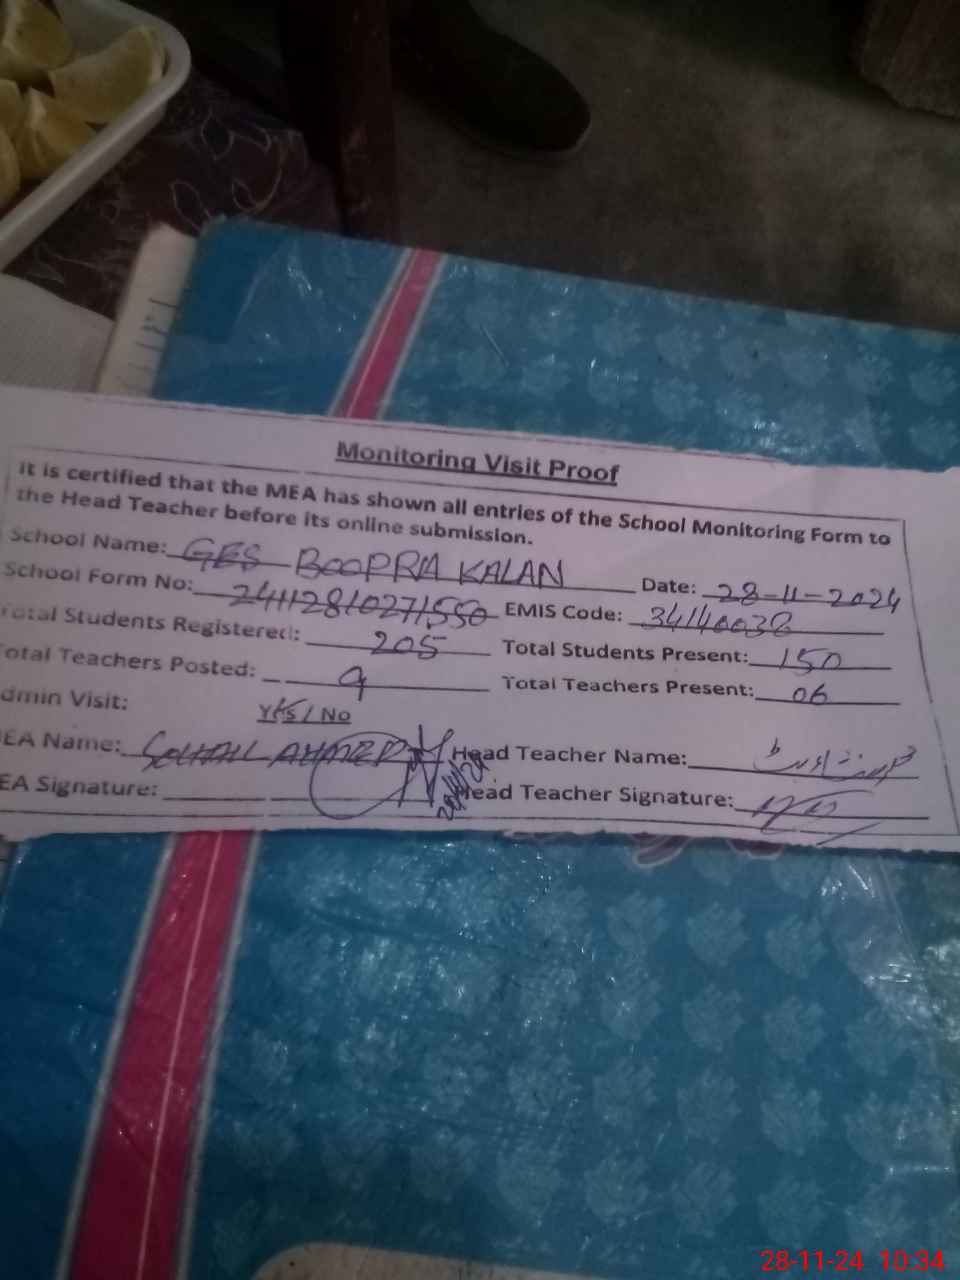 Monitoring Visit Proof
It is certified that the MEA has shown all entries of the School Monitoring Form to
the Head Teacher before its online submission.
School Name: GES BOOPRA KALAN Date: 28-11-2024
School Form No: 24112810271550 EMIS Code: 34140038
Total Students Registered: 205 Total Students Present: 150
Total Teachers Posted: 9 Total Teachers Present: 06
dmin Visit: Yes / No
EA Name: SOHAIL AHMED Head Teacher Name:
EA Signature: Head Teacher Signature:
28-11-24 10:34